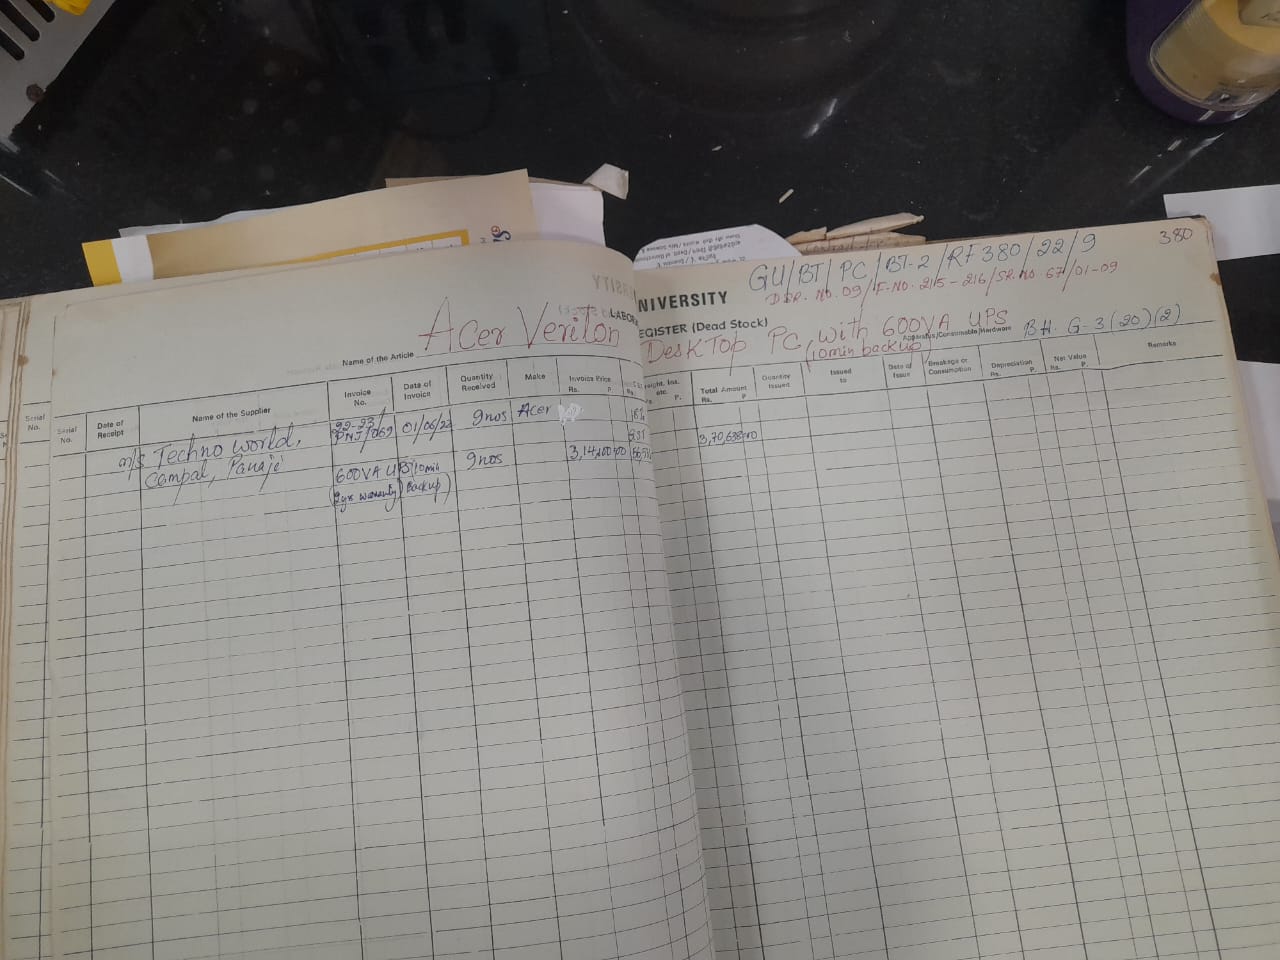 380
GU/BT/PC/BT-2/RF380/22/9
DSR. No. 09/F.NO. 215-216/SR.NO. 67/01-09
NIVERSITY
LABORA
EGISTER (Dead Stock)
Name of the Article Acer Veriton
DeskTop PC, with 600VA UPS
(10min backup
Apparatus/Consumable/Hardware
BH. G-3(20)(2)
Serial No.
Serial No.
Date of Receipt
Name of the Supplier
Invoice No.
Date of Invoice
Quantity Received
Make
Invoice Price Rs. P.
eight. Ins. etc. P.
Total Amount Rs. P
Quantity Issued
Issued to
Date of Issue
Breakage or Consumption
Depreciation Rs. P.
Net Value Rs. P.
Remarks
m/s Techno world,
22-23/
PNJ/069
01/06/22
9nos
Acer
18%
GST
3,70,638 00
Campal, Panaji
600VA UPS (10min
9nos
3,14,100 00
(2yr warranty) Backup)